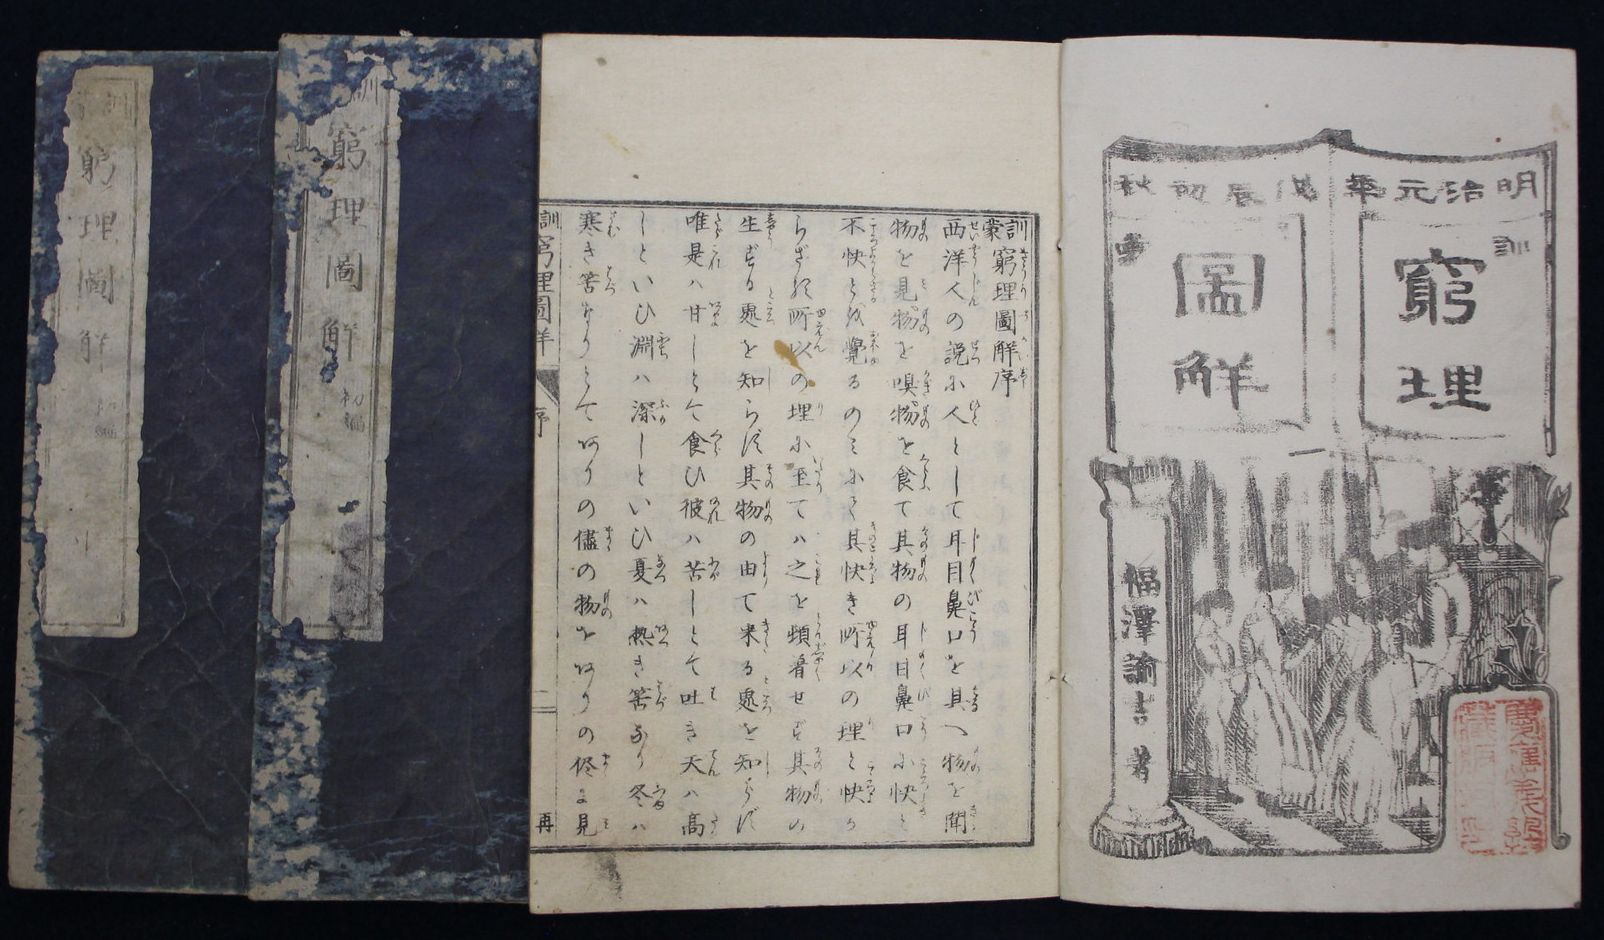 明治元年戊辰初秋
訓蒙
窮理
圖解
福澤諭吉著
慶應義塾
蔵版之印
訓蒙窮理圖解序
西洋人の説に人として耳目鼻口を具へ物を聞
物を見物を嗅物を食て其物の耳目鼻口に快と
不快とを覺るのみにて其快き所以の理と快か
らざる所以の理に至てハ之を頓着せず其物の
生ずる處を知らず其物の由て来る處を知らず
唯是ハ甘しとて食ひ彼ハ苦しとて吐き天ハ高
しといひ淵ハ深しといひ夏ハ熱き筈なり冬ハ
寒き筈なりとてありの儘の物をありの侭に見
訓蒙窮理圖解
序
一
再
訓
窮理圖解
初編
窮理圖解
初編